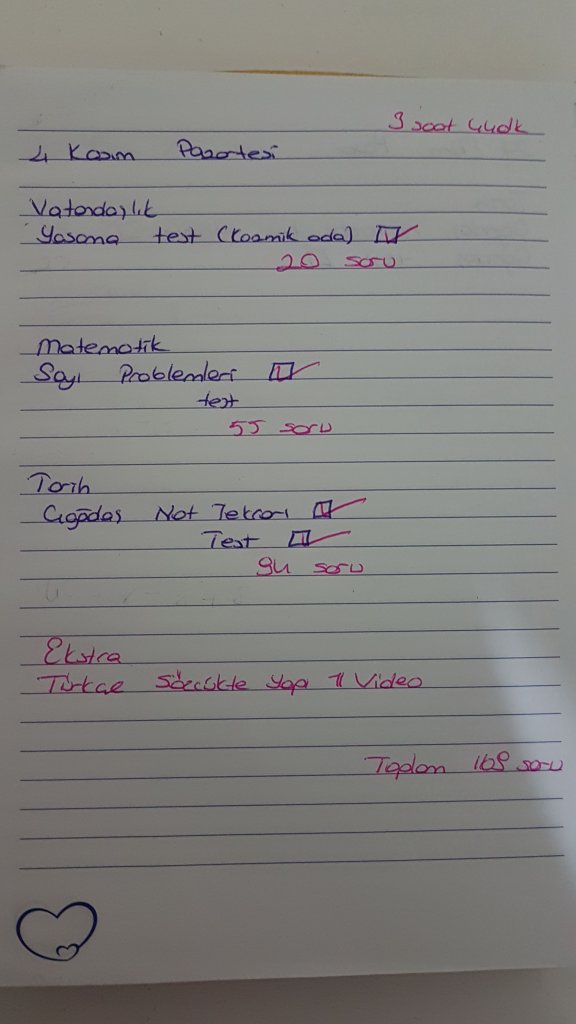 3 saat 44dk
4 Kasım Pazartesi
Vatandaşlık
Yasama test (Kozmik oda)
20 soru
Matematik
Sayı Problemleri
test
55 soru
Tarih
Çağdaş Not Tekrarı
Test
94 soru
Ekstra
Türkçe Sözcükte Yapı 11 Video
Toplam 169 soru